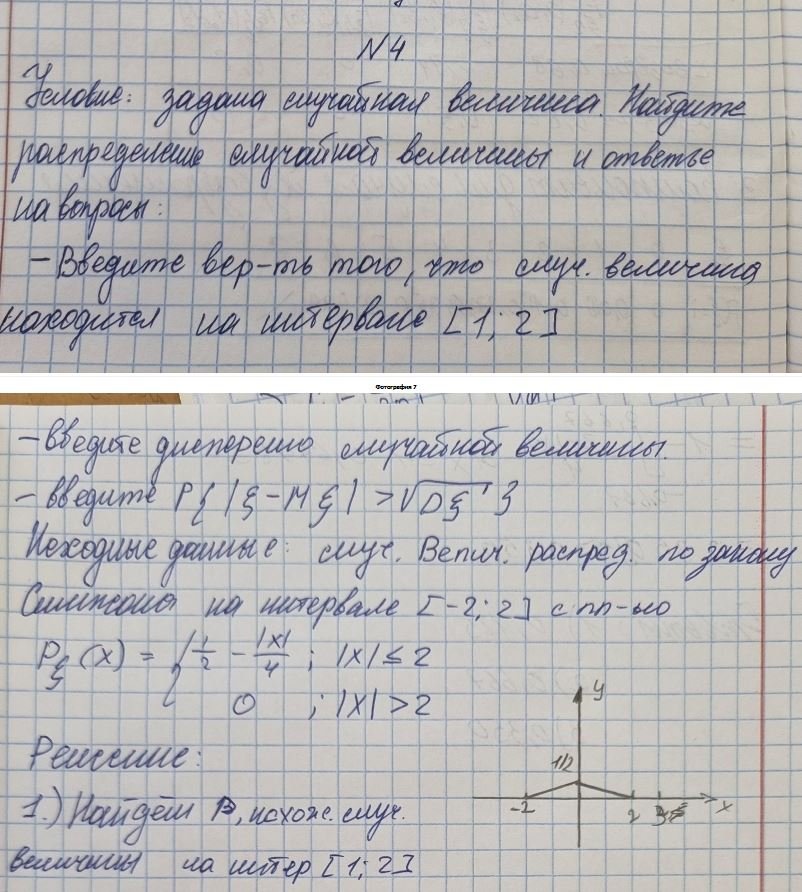 N4
Условие: задана случайная величина. Найдите
распределение случайной величины и ответье
на вопросы:
- Введите вер-ть того, что случ. величина
находится на интервале [1; 2]
Фотография 7
- введите дисперсию случайной величины.
- введите P{|ξ-Mξ| > √Dξ}
Исходные данные: случ. Велич. распред. по закону
Симпсона на интервале [-2; 2] с пл-ью
Pξ(x) = { 1/2 - |x|/4 ; |x| ≤ 2
0 ; |x| > 2
Решение:
y
1/2
-2 2 x
1.) Найдём P, нахожд. случ.
величины на интер [1; 2]